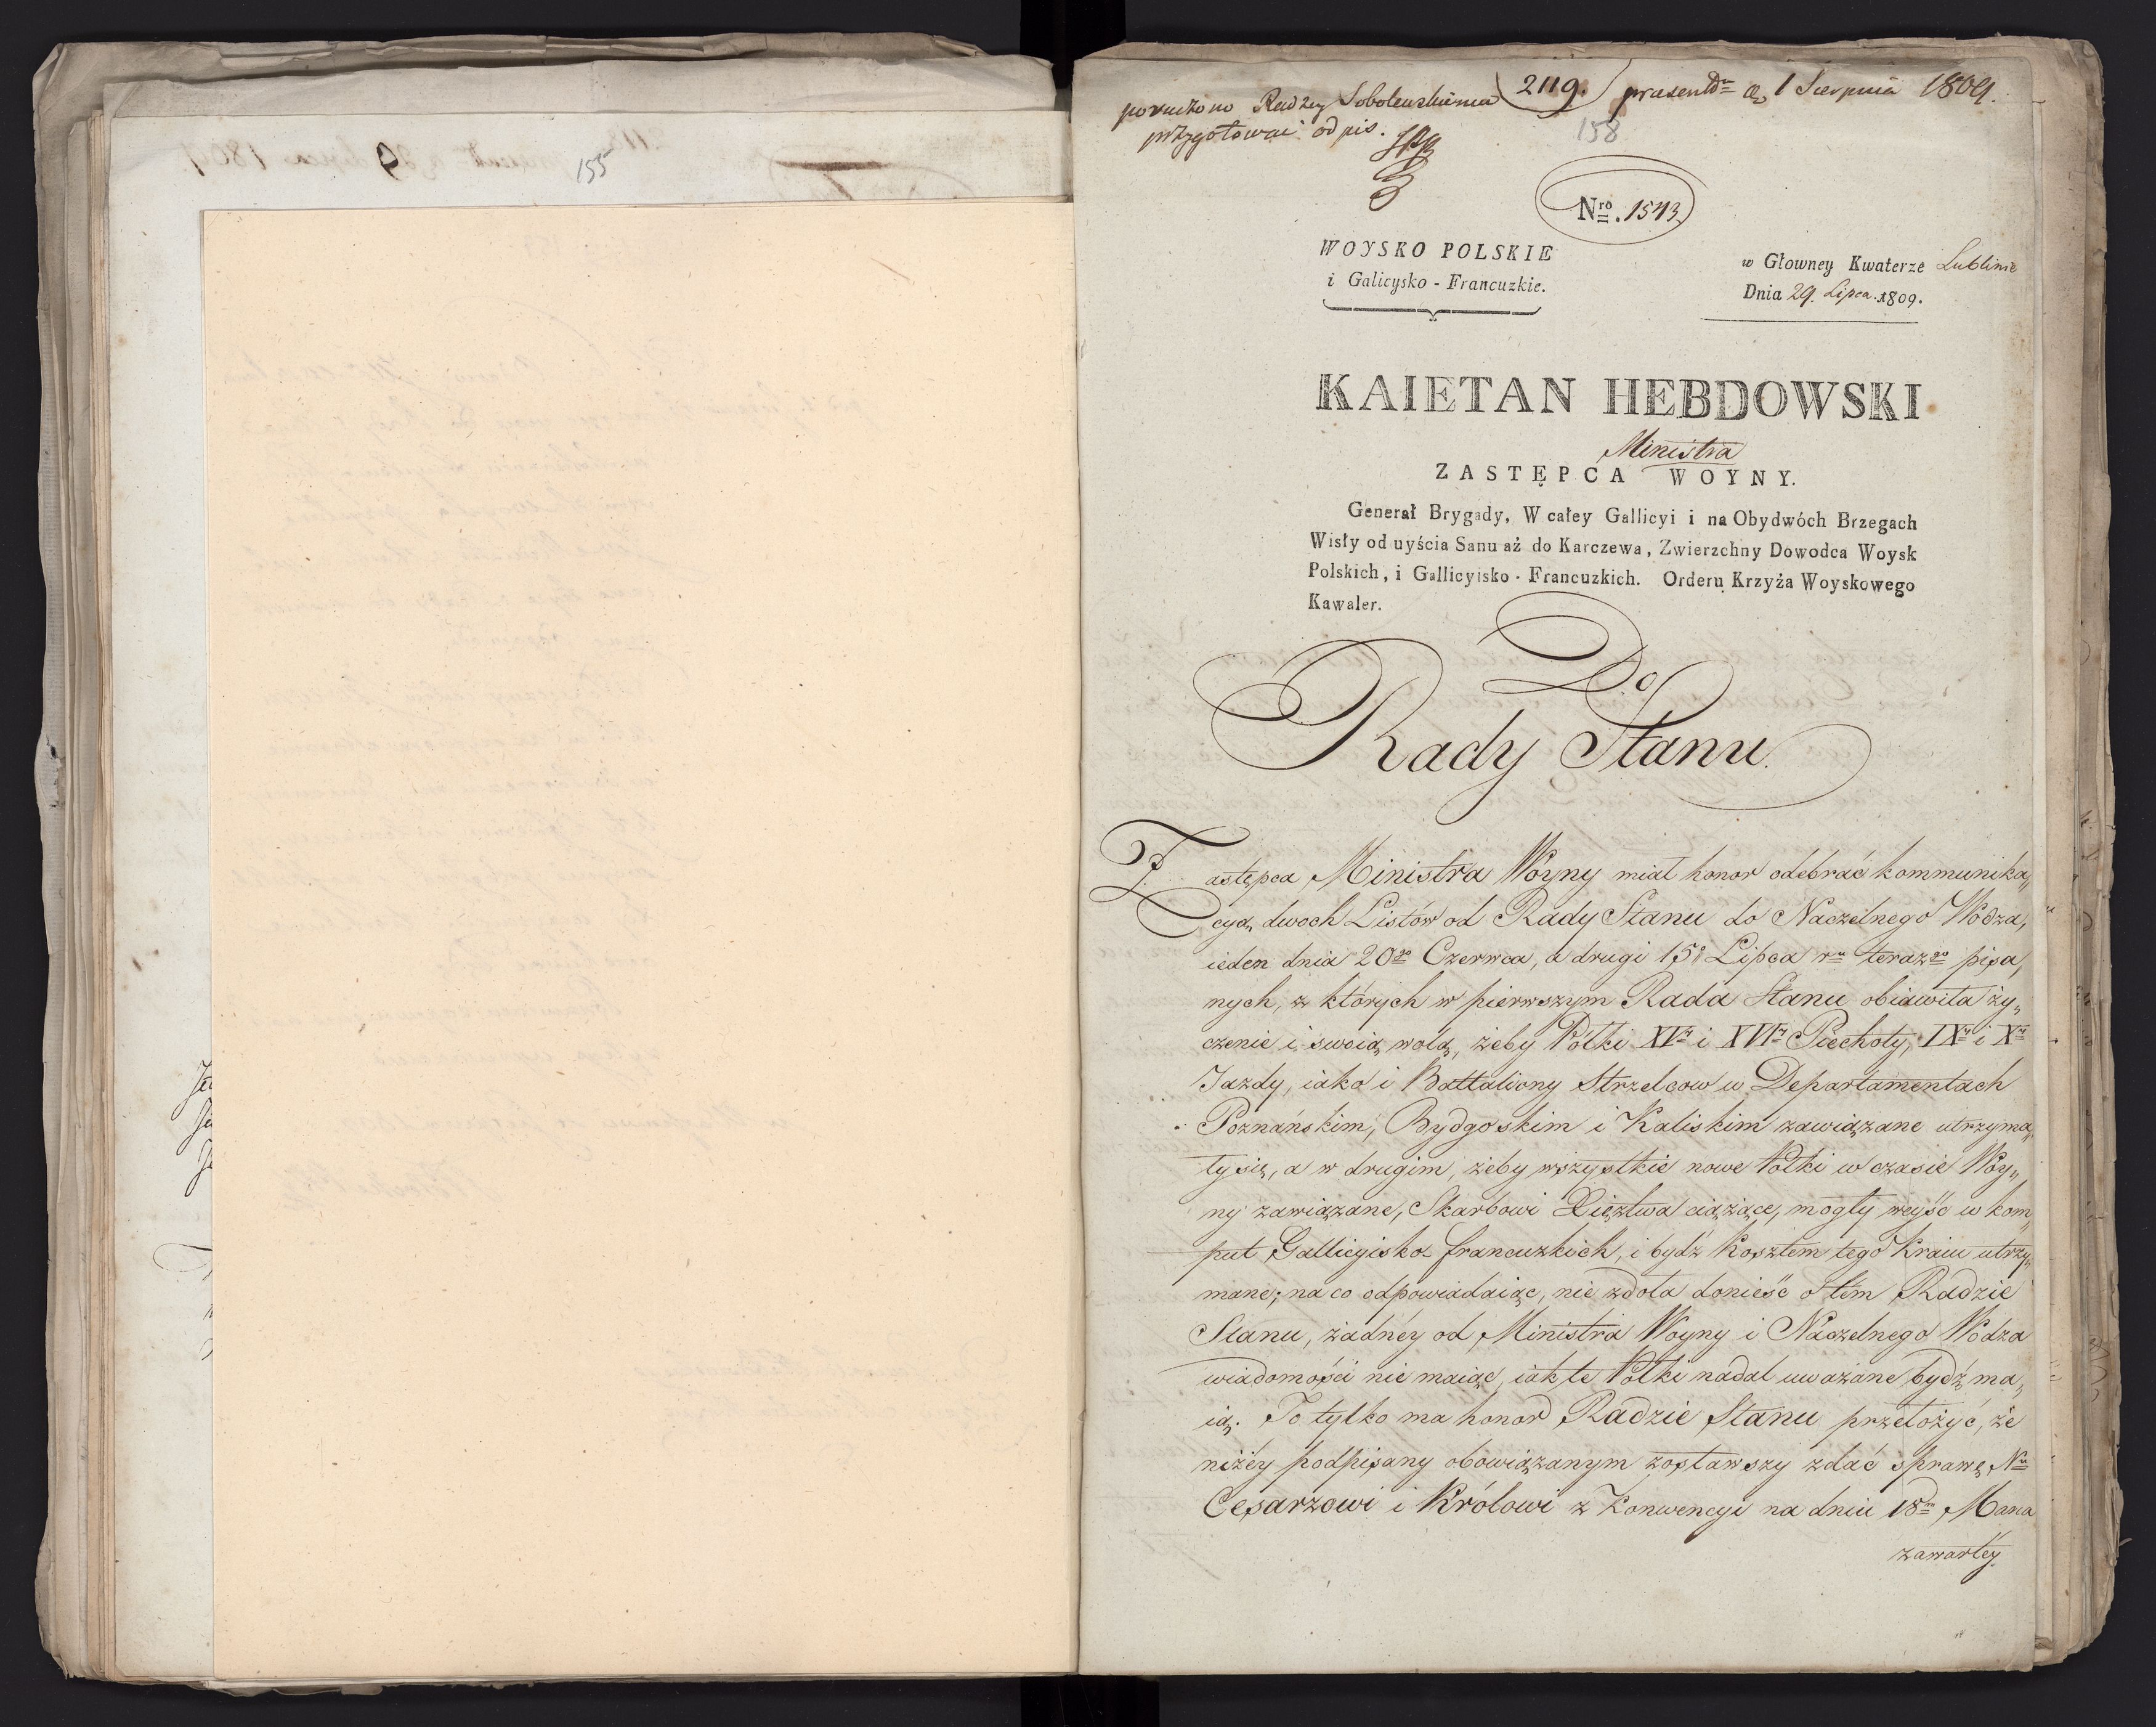 155
poruczono Radzcy Sobolewskiemu
przygotować odpis.
2119.
praesentt d 1 Sierpnia 1809.
158
Nro. 1543
WOYSKO POLSKIE
i Galicysko - Francuzkie.
w Głowney Kwaterze Lublinie
Dnia 29. Lipca. 1809.
KAIETAN HEBDOWSKI
Ministra
ZASTĘPCA WOYNY.
Generał Brygady, W całey Gallicyi i na Obydwóch Brzegach
Wisły od uyścia Sanu aż do Karczewa, Zwierzchny Dowodca Woysk
Polskich, i Gallicyisko - Francuzkich. Orderu Krzyża Woyskowego
Kawaler.
Do
Rady Stanu.
Zastępca Ministra Woyny miał honor odebrać kommunika„
cyą dwoch Listów od Rady Stanu do Naczelnego Wodza,
ieden dnia 20go Czerwca, a drugi 15o Lipca ru terazgo pisa„
nych, z których w pierwszym Rada Stanu obiawiła ży„
czenie i swoią wolą, żeby Półki XVty i XVIty Piechoty, IXty i Xty
Jazdy, iako i Battaliony Strzelcow w Departamentach
Poznańskim, Bydgoskim i Kaliskim zawiązane utrzyma„
ły się, a w drugim, żeby wszystkie nowe Półki w czasie Woy„
ny zawiązane, Skarbowi Xięztwa ciążące, mogły weyść w kom„
put Gallicyisko francuzkich, i bydź kosztem tego Kraiu utrzy„
mane; na co odpowiadaiąc, nie zdoła donieść o tém Radzie
Stanu, żadnéy od Ministra Woyny i Naczelnego Wodza
wiadomości nie maiąc, iak te Półki nadal uważane bydź ma„
ią. To tylko ma honor Radzie Stanu przełożyć, że
niżéy podpisany obowiązanym zostawszy zdać sprawę Nu
Cesarzowi i Królowi z Konwencyi na dniu 18m Maia
zawartéy